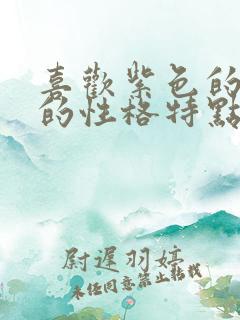 喜歡紫色的
的性格特點
尉遲羽婷
未任同意禁止轉載